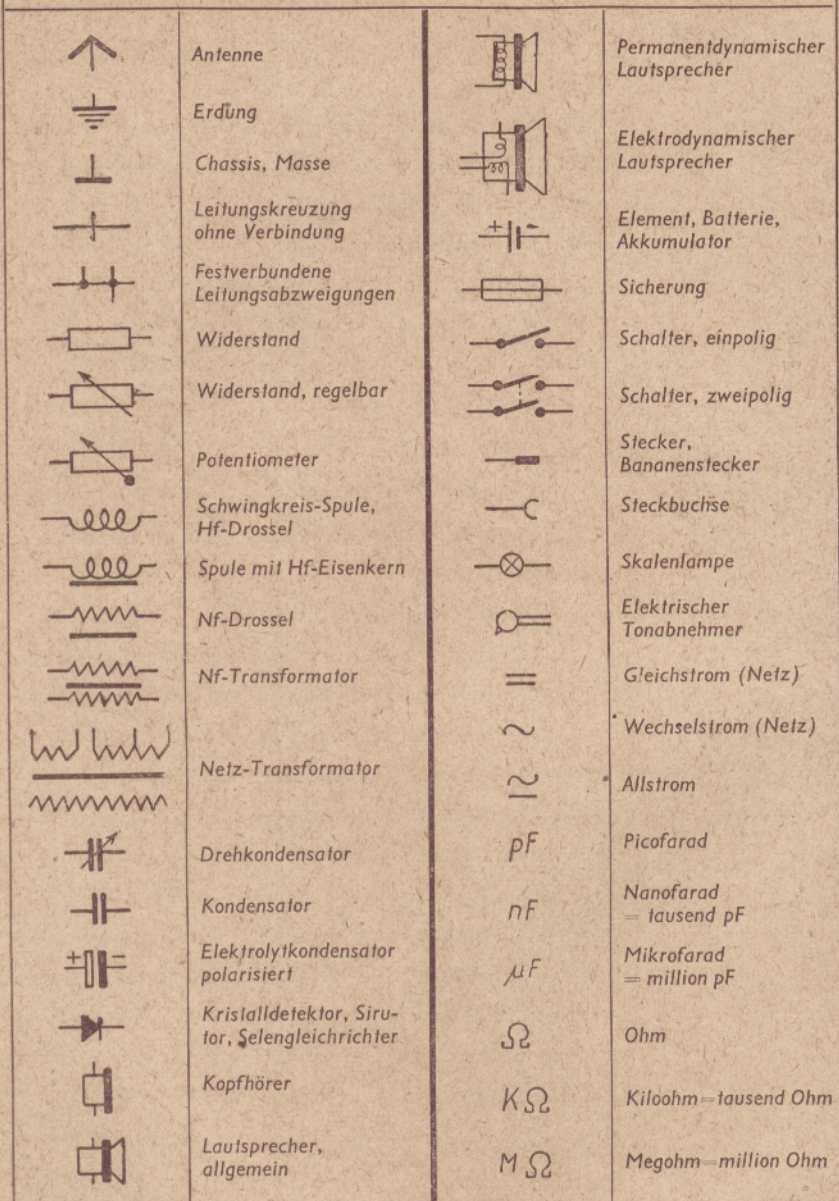 Antenne
Erdung
Chassis, Masse
Leitungskreuzung
ohne Verbindung
Festverbundene
Leitungsabzweigungen
Widerstand
Widerstand, regelbar
Potentiometer
Schwingkreis-Spule,
Hf-Drossel
Spule mit Hf-Eisenkern
Nf-Drossel
Nf-Transformator
Netz-Transformator
Drehkondensator
Kondensator
+ -
Elektrolytkondensator
polarisiert
Kristalldetektor, Siru-
tor, Selengleichrichter
Kopfhörer
Lautsprecher,
allgemein
Permanentdynamischer
Lautsprecher
Elektrodynamischer
Lautsprecher
+ -
Element, Batterie,
Akkumulator
Sicherung
Schalter, einpolig
Schalter, zweipolig
Stecker,
Bananenstecker
Steckbuchse
Skalenlampe
Elektrischer
Tonabnehmer
Gleichstrom (Netz)
Wechselstrom (Netz)
Allstrom
pF Picofarad
nF Nanofarad
= tausend pF
µF Mikrofarad
= million pF
Ω Ohm
KΩ Kiloohm=tausend Ohm
MΩ Megohm=million Ohm